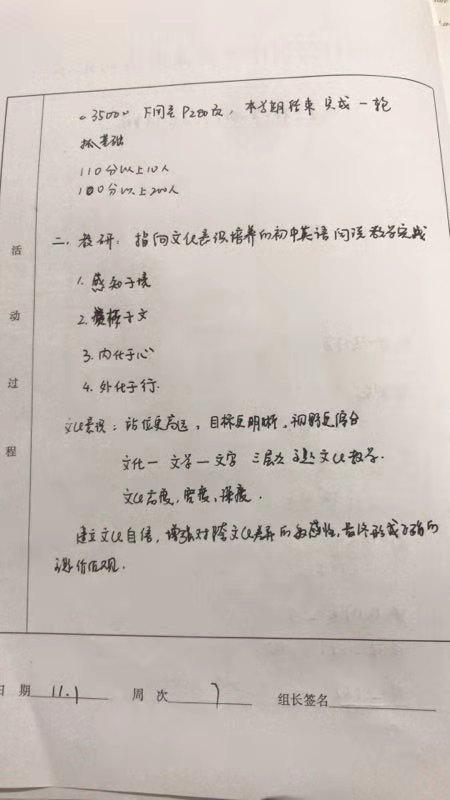 3500 下册至P280页，本学期结束完成一轮
抓基础
110分以上10人
100分以上200人
二、教研：指向文化意识培养的初中英语阅读教学实践
1. 感知于境
2. 于文
3. 内化于心
4. 外化于行.
文化意识：站位更高远，目标更明晰，视野更
文化—文学—文字 三层次 文化教学.
文化高度，宽度，深度.
建立文化自信，增强对跨文化差异的敏感性，最终形成正确的
价值观.
活动过程
日 期 11.1 周 次 7 组长签名